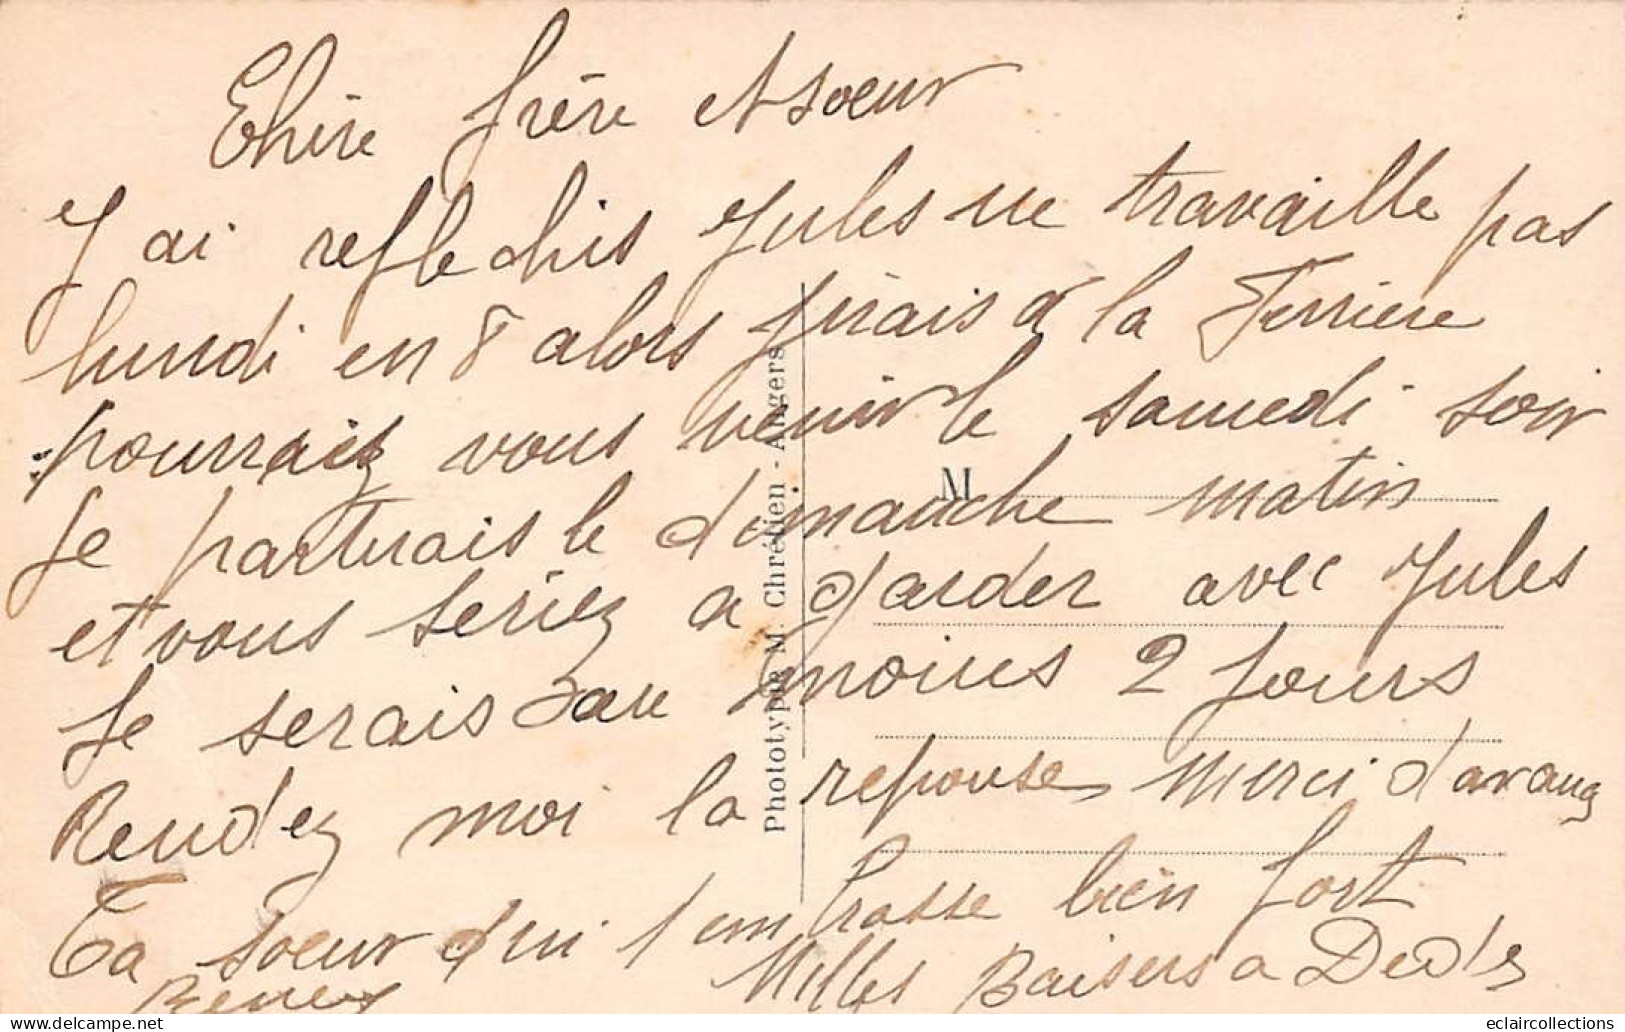 Chère frère et soeur
J ai reflechis Jules ne travaille pas
lundi en 8 alors j irais a la Ferriere
pourraiez vous venir le samedi soir
Je partirais le dimanche matin
et vous seriez a garder avec Jules
Je serais au moins 2 jours
Rendez moi la reponse merci d avang
Ta soeur qui t embrasse bien fort
Milles Baisers a Dedes
M
Phototypie M. Chrétien - Angers
eclaircollections